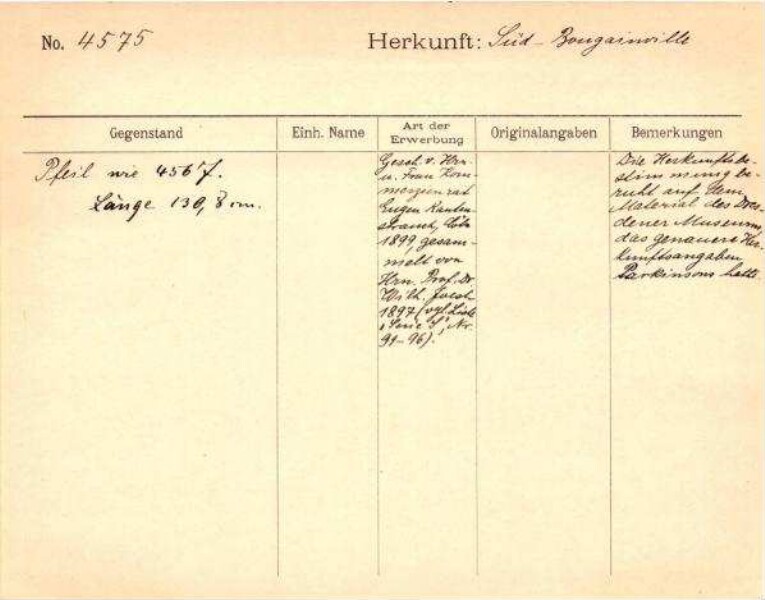 No. 4575
Herkunft: Süd-Bougainville
Gegenstand
Einh. Name
Art der
Erwerbung
Originalangaben
Bemerkungen
Pfeil wie 4567.
Länge 130,8 cm.
Gesch. v. Hrn.
u. Frau Kom-
merzienrat
Eugen Rauten-
strauch, Cöln
1899, gesam-
melt von
Hrn. Prof. Dr
Wilh. Joest
1897 (vgl. Liste
"Serie I", Nr.
91-96).
Die Herkunftsbe-
stimmung be-
ruht auf dem
Material des Dres-
dener Museums,
das genauere Her-
kunftsangaben
Parkinsons hatte.